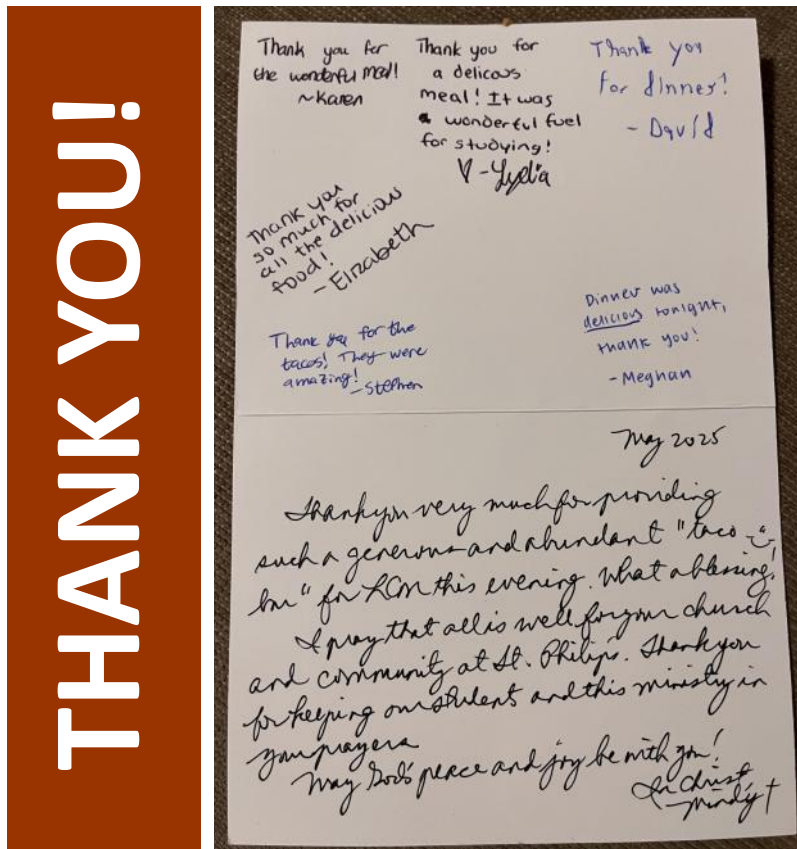 THANK YOU!
Thank you for
the wonderful meal!
~Karen
Thank you for
a delicous
meal! It was
wonderful fuel
for studying!
♥ -Lydia
Thank you
for dinner!
- David
Thank you
so much for
all the delicious
food!
- Elizabeth
Dinner was
delicious tonight,
thank you!
- Meghan
Thank you for the
tacos! They were
amazing!
-Stephen
May 2025
Thank you very much for providing
such a generous and abundant "taco
bar" for LCM this evening. What a blessing!
I pray that all is well for your church
and community at St. Philip's. Thank you
for keeping our student and this ministry in
your prayers.
May God's peace and joy be with you!
In Christ
-Mindy †